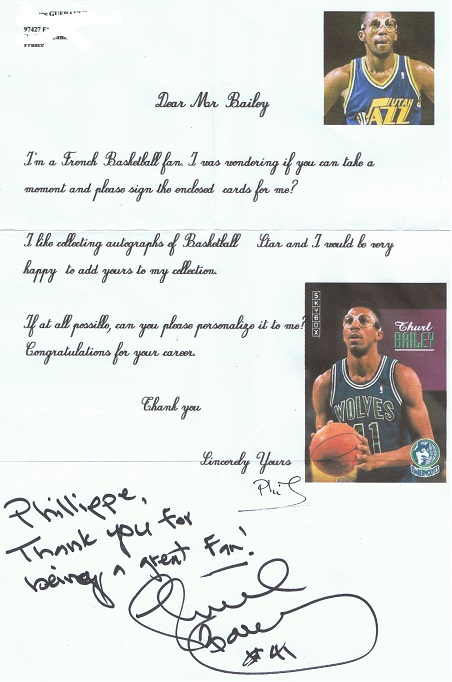 97427
France
UTAH
JAZZ
Dear Mr Bailey
I'm a French Basketball fan. I was wondering if you can take a
moment and please sign the enclosed cards for me?
I like collecting autographs of Basketball Star and I would be very
happy to add yours to my collection.
If at all possible, can you please personalize it to me?
Congratulations for your career.
SKYBOX
Thurl
BAILEY
WOLVES
41
Thank you
Sincerely Yours
Phillippe,
Thank you for
being a great Fan!
#41